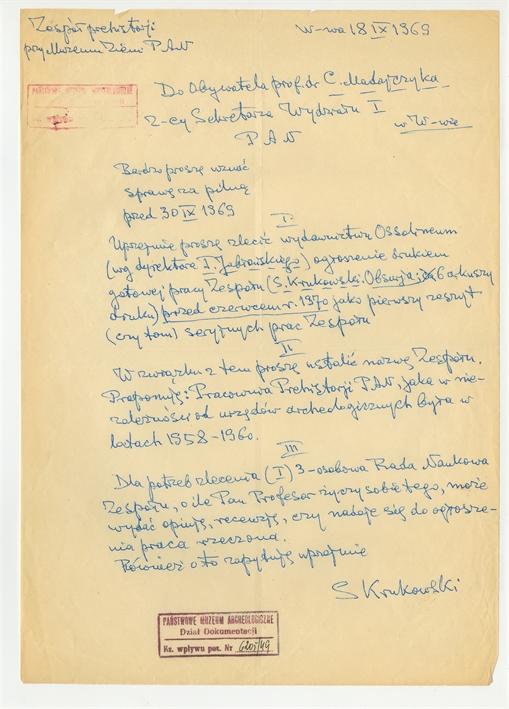 Zespół prehistorji
przy Muzeum Ziemi PAN
W-wa 18 IX 1969
PAŃSTWOWE MUZEUM ARCHEOLOGICZNE
Do Obywatela prof. dr C. Madajczyka
z-cy Sekretarza Wydziału I
PAN
w W-wie
Bardzo proszę uznać
sprawę za pilną
przed 30 IX 1969
I
Uprzejmie proszę zlecić wydawnictwu Ossolineum
(wg dyrektora I. ) ogłoszenie drukiem
gotowej pracy Zespołu (S. Krukowski. 6 arkuszy
druku) przed czerwcem r. 1970 jako pierwszy zeszyt
(czy tom) seryjnych prac Zespołu
II
W związku z tem proszę ustalić nazwę Zespołu.
Proponuję: Pracownia Prehistorji PAN, jaka w nie-
zależności od urzędów archeologicznych była w
latach 1958-1960.
III
Dla potrzeb zlecenia (I) 3-osobowa Rada Naukowa
Zespołu, o ile Pan Profesor życzy sobie tego, może
wydać opinję, recenzję, czy nadaje się do ogłosze-
nia praca rzeczona.
Również o to zapytuję uprzejmie
S Krukowski
PAŃSTWOWE MUZEUM ARCHEOLOGICZNE
Dział Dokumentacji
Ks. wpływu poz. Nr